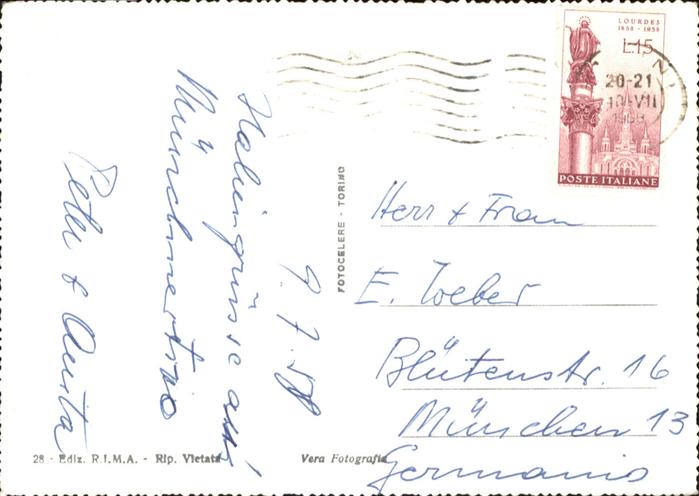 LOURDES
1858 - 1958
L.15
20-21
10-VII
1958
POSTE ITALIANE
9.7.58
Italiengrüsse aus
Münchnertino
Peter & Anita
FOTOCELERE - TORINO
Herr & Frau
E. Weber
Blütenstr. 16
München 13
Germania
28 - Ediz. R.I.M.A. - Rip. Vietata
Vera Fotografia